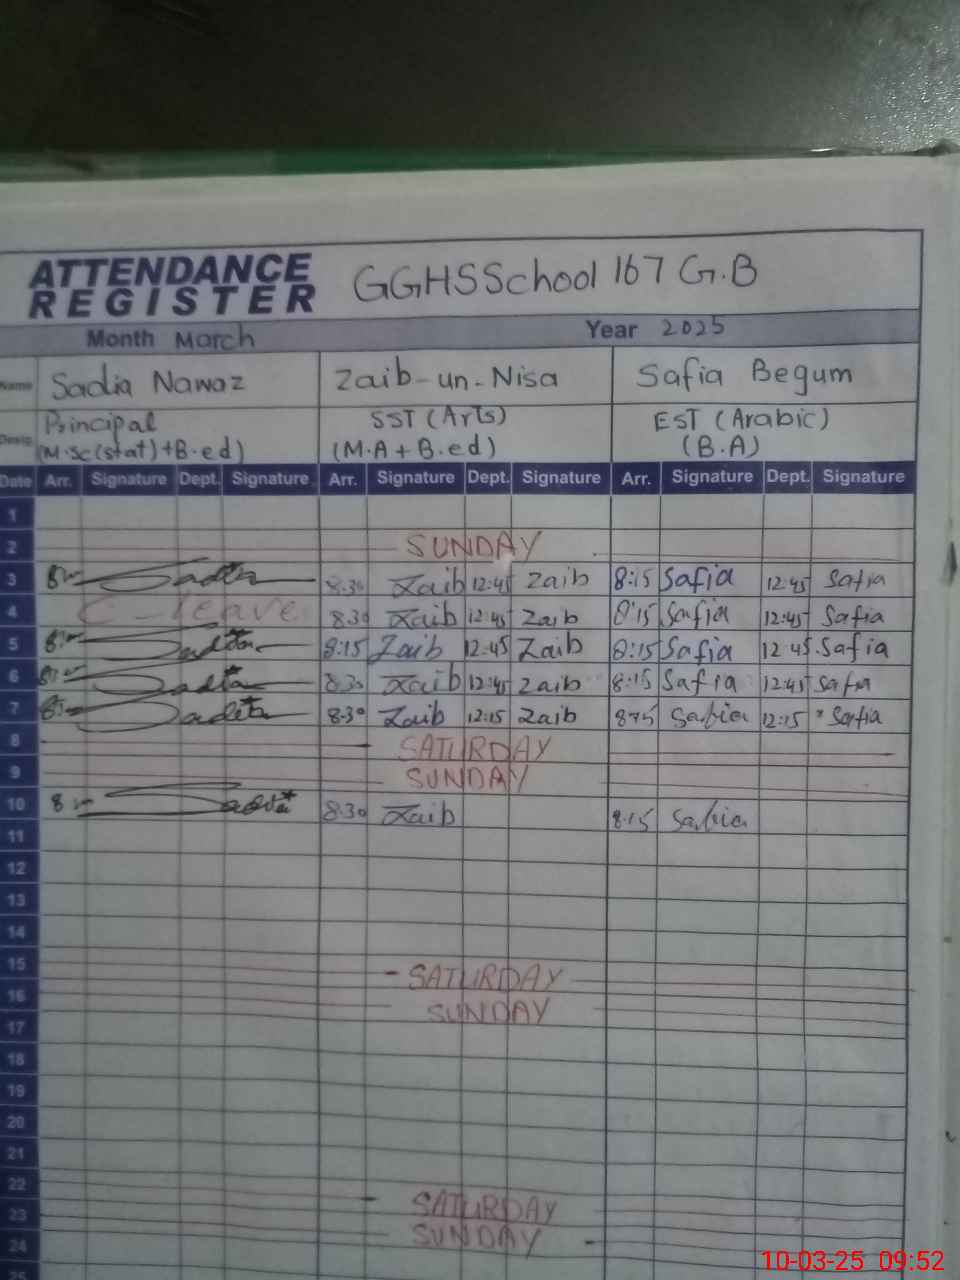 ATTENDANCE REGISTER GGHSSchool 167 G.B
Month March Year 2025
Name Sadia Nawaz Zaib-un-Nisa Safia Begum
Desig. Principal SST (Arts) EST (Arabic)
(M.sc(stat)+B.ed) (M.A+B.ed) (B.A)
Date Arr. Signature Dept. Signature Arr. Signature Dept. Signature Arr. Signature Dept. Signature
1
2 SUNDAY
3 8:30 Zaib 12:45 Zaib 8:15 Safia 12:45 Safia
4 C-leave 8:30 Zaib 12:45 Zaib 8:15 Safia 12:45 Safia
5 8:15 Zaib 12:45 Zaib 8:15 Safia 12:45 Safia
6 8:30 Zaib 12:45 Zaib 8:15 Safia 12:45 Safia
7 8:30 Zaib 12:15 Zaib Safia 12:15 Safia
8 SATURDAY
9 SUNDAY
10 8:30 Zaib 8:15 Safia
11
12
13
14
15 SATURDAY
16 SUNDAY
17
18
19
20
21
22 SATURDAY
23 SUNDAY
24
25
10-03-25 09:52